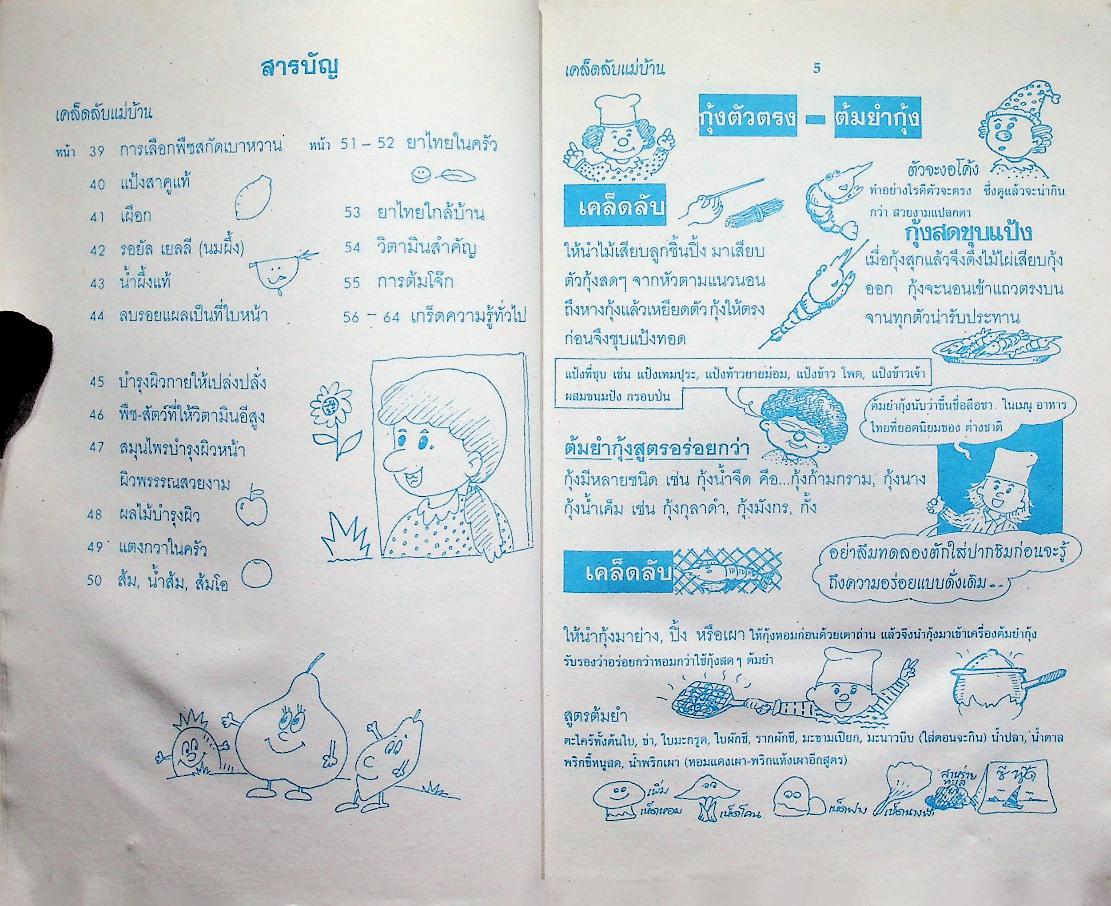 สารบัญ
เคล็ดลับแม่บ้าน
หน้า 39 การเลือกพืชสกัดเบาหวาน
40 แป้งสาคูแท้
41 เผือก
42 รอยัล เยลลี่ (นมผึ้ง)
43 น้ำผึ้งแท้
44 ลบรอยแผลเป็นที่ใบหน้า
45 บำรุงผิวกายให้เปล่งปลั่ง
46 พืช-สัตว์ที่ให้วิตามินอีสูง
47 สมุนไพรบำรุงผิวหน้า
ผิวพรรรณสวยงาม
48 ผลไม้บำรุงผิว
49 แตงกวาในครัว
50 ส้ม, น้ำส้ม, ส้มโอ
หน้า 51 – 52 ยาไทยในครัว
53 ยาไทยใกล้บ้าน
54 วิตามินสำคัญ
55 การต้มโจ๊ก
56 – 64 เกร็ดความรู้ทั่วไป
เคล็ดลับแม่บ้าน 5
กุ้งตัวตรง - ต้มยำกุ้ง
ตัวจะงอโค้ง
ทำอย่างไรดีตัวจะตรง ซึ่งดูแล้วจะน่ากิน
กว่า สวยงามแปลกตา
เคล็ดลับ
ให้นำไม้เสียบลูกชิ้นปิ้ง มาเสียบ
ตัวกุ้งสดๆ จากหัวตามแนวนอน
ถึงหางกุ้งแล้วเหยียดตัวกุ้งให้ตรง
ก่อนจึงชุบแป้งทอด
กุ้งสดชุบแป้ง
เมื่อกุ้งสุกแล้วจึงดึงไม้ไผ่เสียบกุ้ง
ออก กุ้งจะนอนเข้าแถวตรงบน
จานทุกตัวน่ารับประทาน
แป้งที่ชุบ เช่น แป้งเทมปุระ, แป้งท้าวยายม่อม, แป้งข้าว โพด, แป้งข้าวเจ้า
ผสมขนมปัง กรอบป่น
ต้มยำกุ้งนับว่าขึ้นชื่อลือชา. ในเมนู อาหาร
ไทยที่ยอดนิยมของ ต่างชาติ
ต้มยำกุ้งสูตรอร่อยกว่า
กุ้งมีหลายชนิด เช่น กุ้งน้ำจืด คือ...กุ้งก้ามกราม, กุ้งนาง
กุ้งน้ำเค็ม เช่น กุ้งกุลาดำ, กุ้งมังกร, กั้ง
อย่าลืมทดลองตักใส่ปากชิมก่อนจะรู้
ถึงความอร่อยแบบดั่งเดิม--
เคล็ดลับ
ให้นำกุ้งมาย่าง, ปิ้ง หรือเผา ให้กุ้งหอมก่อนด้วยเตาถ่าน แล้วจึงนำกุ้งมาเข้าเครื่องต้มยำกุ้ง
รับรองว่าอร่อยกว่าหอมกว่าใช้กุ้งสดๆ ต้มยำ
สูตรต้มยำ
ตะไคร้ทั้งต้นใบ, ข่า, ใบมะกรูด, ใบผักชี, รากผักชี, มะขามเปียก, มะนาวบีบ (ใส่ตอนจะกิน) น้ำปลา, น้ำตาล
พริกขี้หนูสด, น้ำพริกเผา (หอมแดงเผา-พริกแห้งเผาอีกสูตร)
เพิ่ม
เห็ดหอม เห็ดโคน เห็ดฟาง เห็ดนางฟ้า